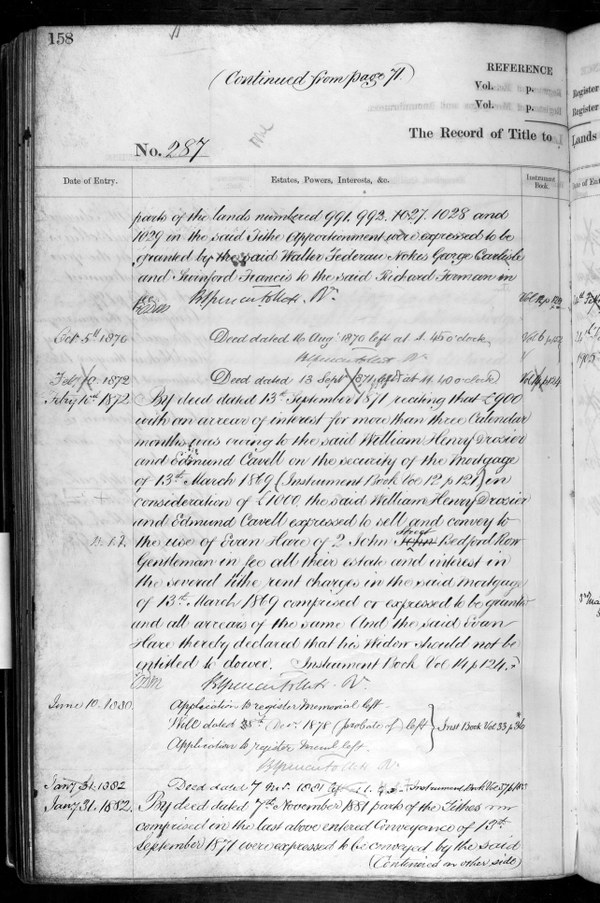 158
(Continued from page 71)
REFERENCE
Vol. p.
Vol. p.
The Record of Title to
No. 287
Date of Entry.
Estates, Powers, Interests, &c.
Instrument Book.
parts of the lands numbered 991. 992. 1027. 1028 and
1029 in the said Tithe Apportionment were expressed to be
granted by the said Walter Nokes George Carlisle
and Swinford Francis to the said Richard Forman in
fee
Vol 12 p 129
Oct 5th 1870 Deed dated 16 Augt 1870 left at 2. 45 o'clock Vol 6 p
Feby 10 1872 Deed dated 13 Sept 1871 left at 11. 40 o'clock Vol 14 p 124
Feby 10th 1872 By deed dated 13th September 1871 reciting that £900
with an arrear of interest for more than three Calendar
months was owing to the said William Henry Drosier
and Edmund Cavell on the security of the Mortgage
of 13th March 1869 (Instrument Book Voe 12 p 121) in
consideration of £1000 the said William Henry Drosier
and Edmund Cavell expressed to sell and convey to
the use of Evan Hare of 2 John Street Bedford Row
Gentleman in fee all their estate and interest in
the several tithe rent charges in the said mortgage
of 13th March 1869 comprised or expressed to be grant
and all arrears of the same And the said Evan
Hare thereby declared that his Widow should not be
entitled to dower. Instrument Book Vol 14 p 124.
June 10. 1880 Application to register memorial left
Will dated 28th Decr. 1878 (probate of) left Inst Book Vol 33 p 36
Application to register left.
Jany 31. 1882 Deed dated 7 Nov. 1881 Instrument Book Vol 37 p
Jany 31. 1882. By deed dated 7th November 1881 parts of the Tithes
comprised in the last above entered Conveyance of 13th
September 1871 were expressed to be conveyed by the said
(Continued on other side)
Register
Register
Lands
Date of Ent